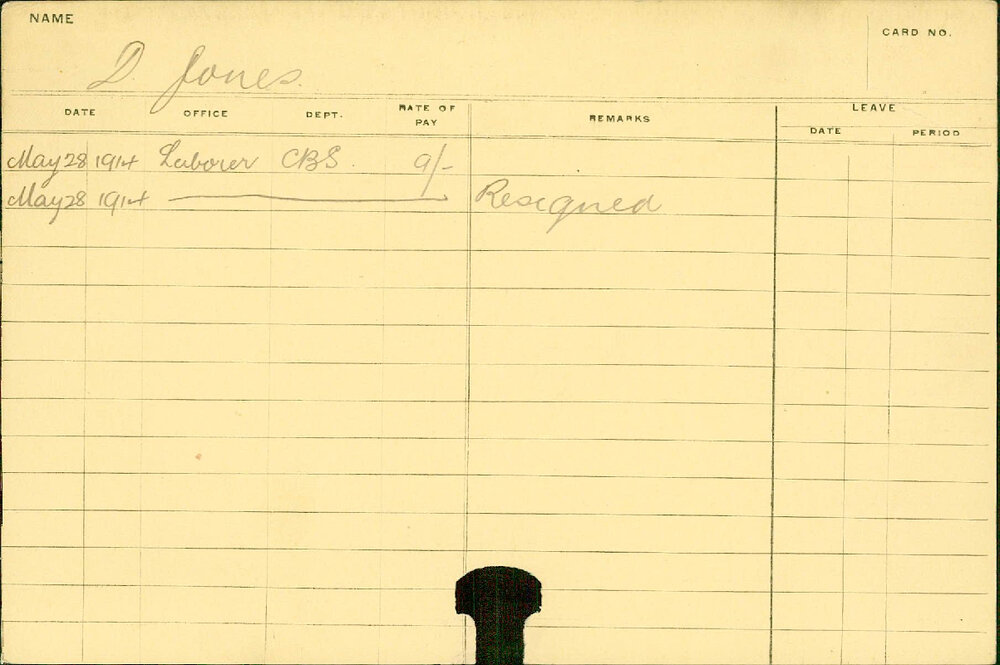 NAME
CARD NO.
D. Jones.
DATE OFFICE DEPT. RATE OF PAY REMARKS LEAVE
DATE PERIOD
May 28 1914 Laborer CBS. 9/-
May 28 1914 Resigned